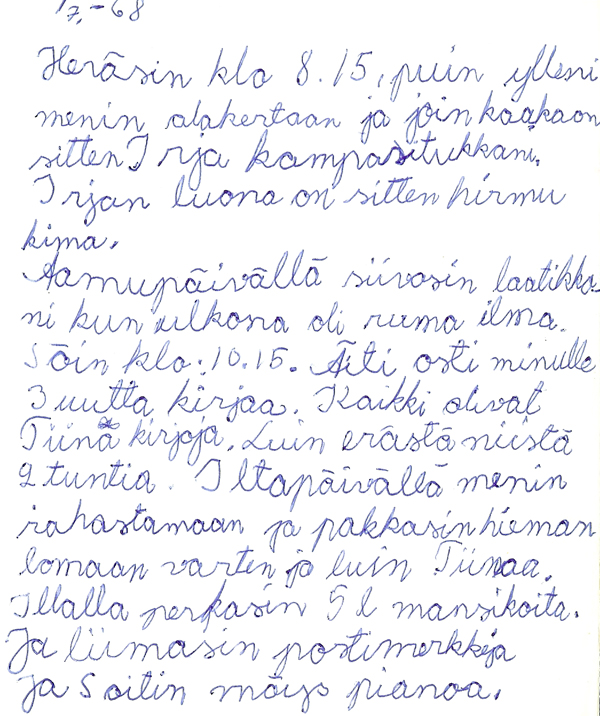 17.-68
Heräsin klo 8.15, puin ylleni
menin alakertaan ja join kaakaon
sitten Irja kampasitukkani.
Irjan luona on sitten hirmu
kima.
Aamupäivällä siivosin laatikko-
ni kun ulkona oli ruma ilma.
Söin klo. 10.15. Äiti osti minulle
3 uutta kirjaa. Kaikki olivat
Tiina kirjoja. Luin erästä niistä
2 tuntia. Iltapäivällä menin
rahastamaan ja pakkasin hieman
lomaan varten ja luin Tiinaa.
Illalla perkasin 5 l mansikoita.
Ja liimasin postimerkkejä
ja Soitin möys pianoa.